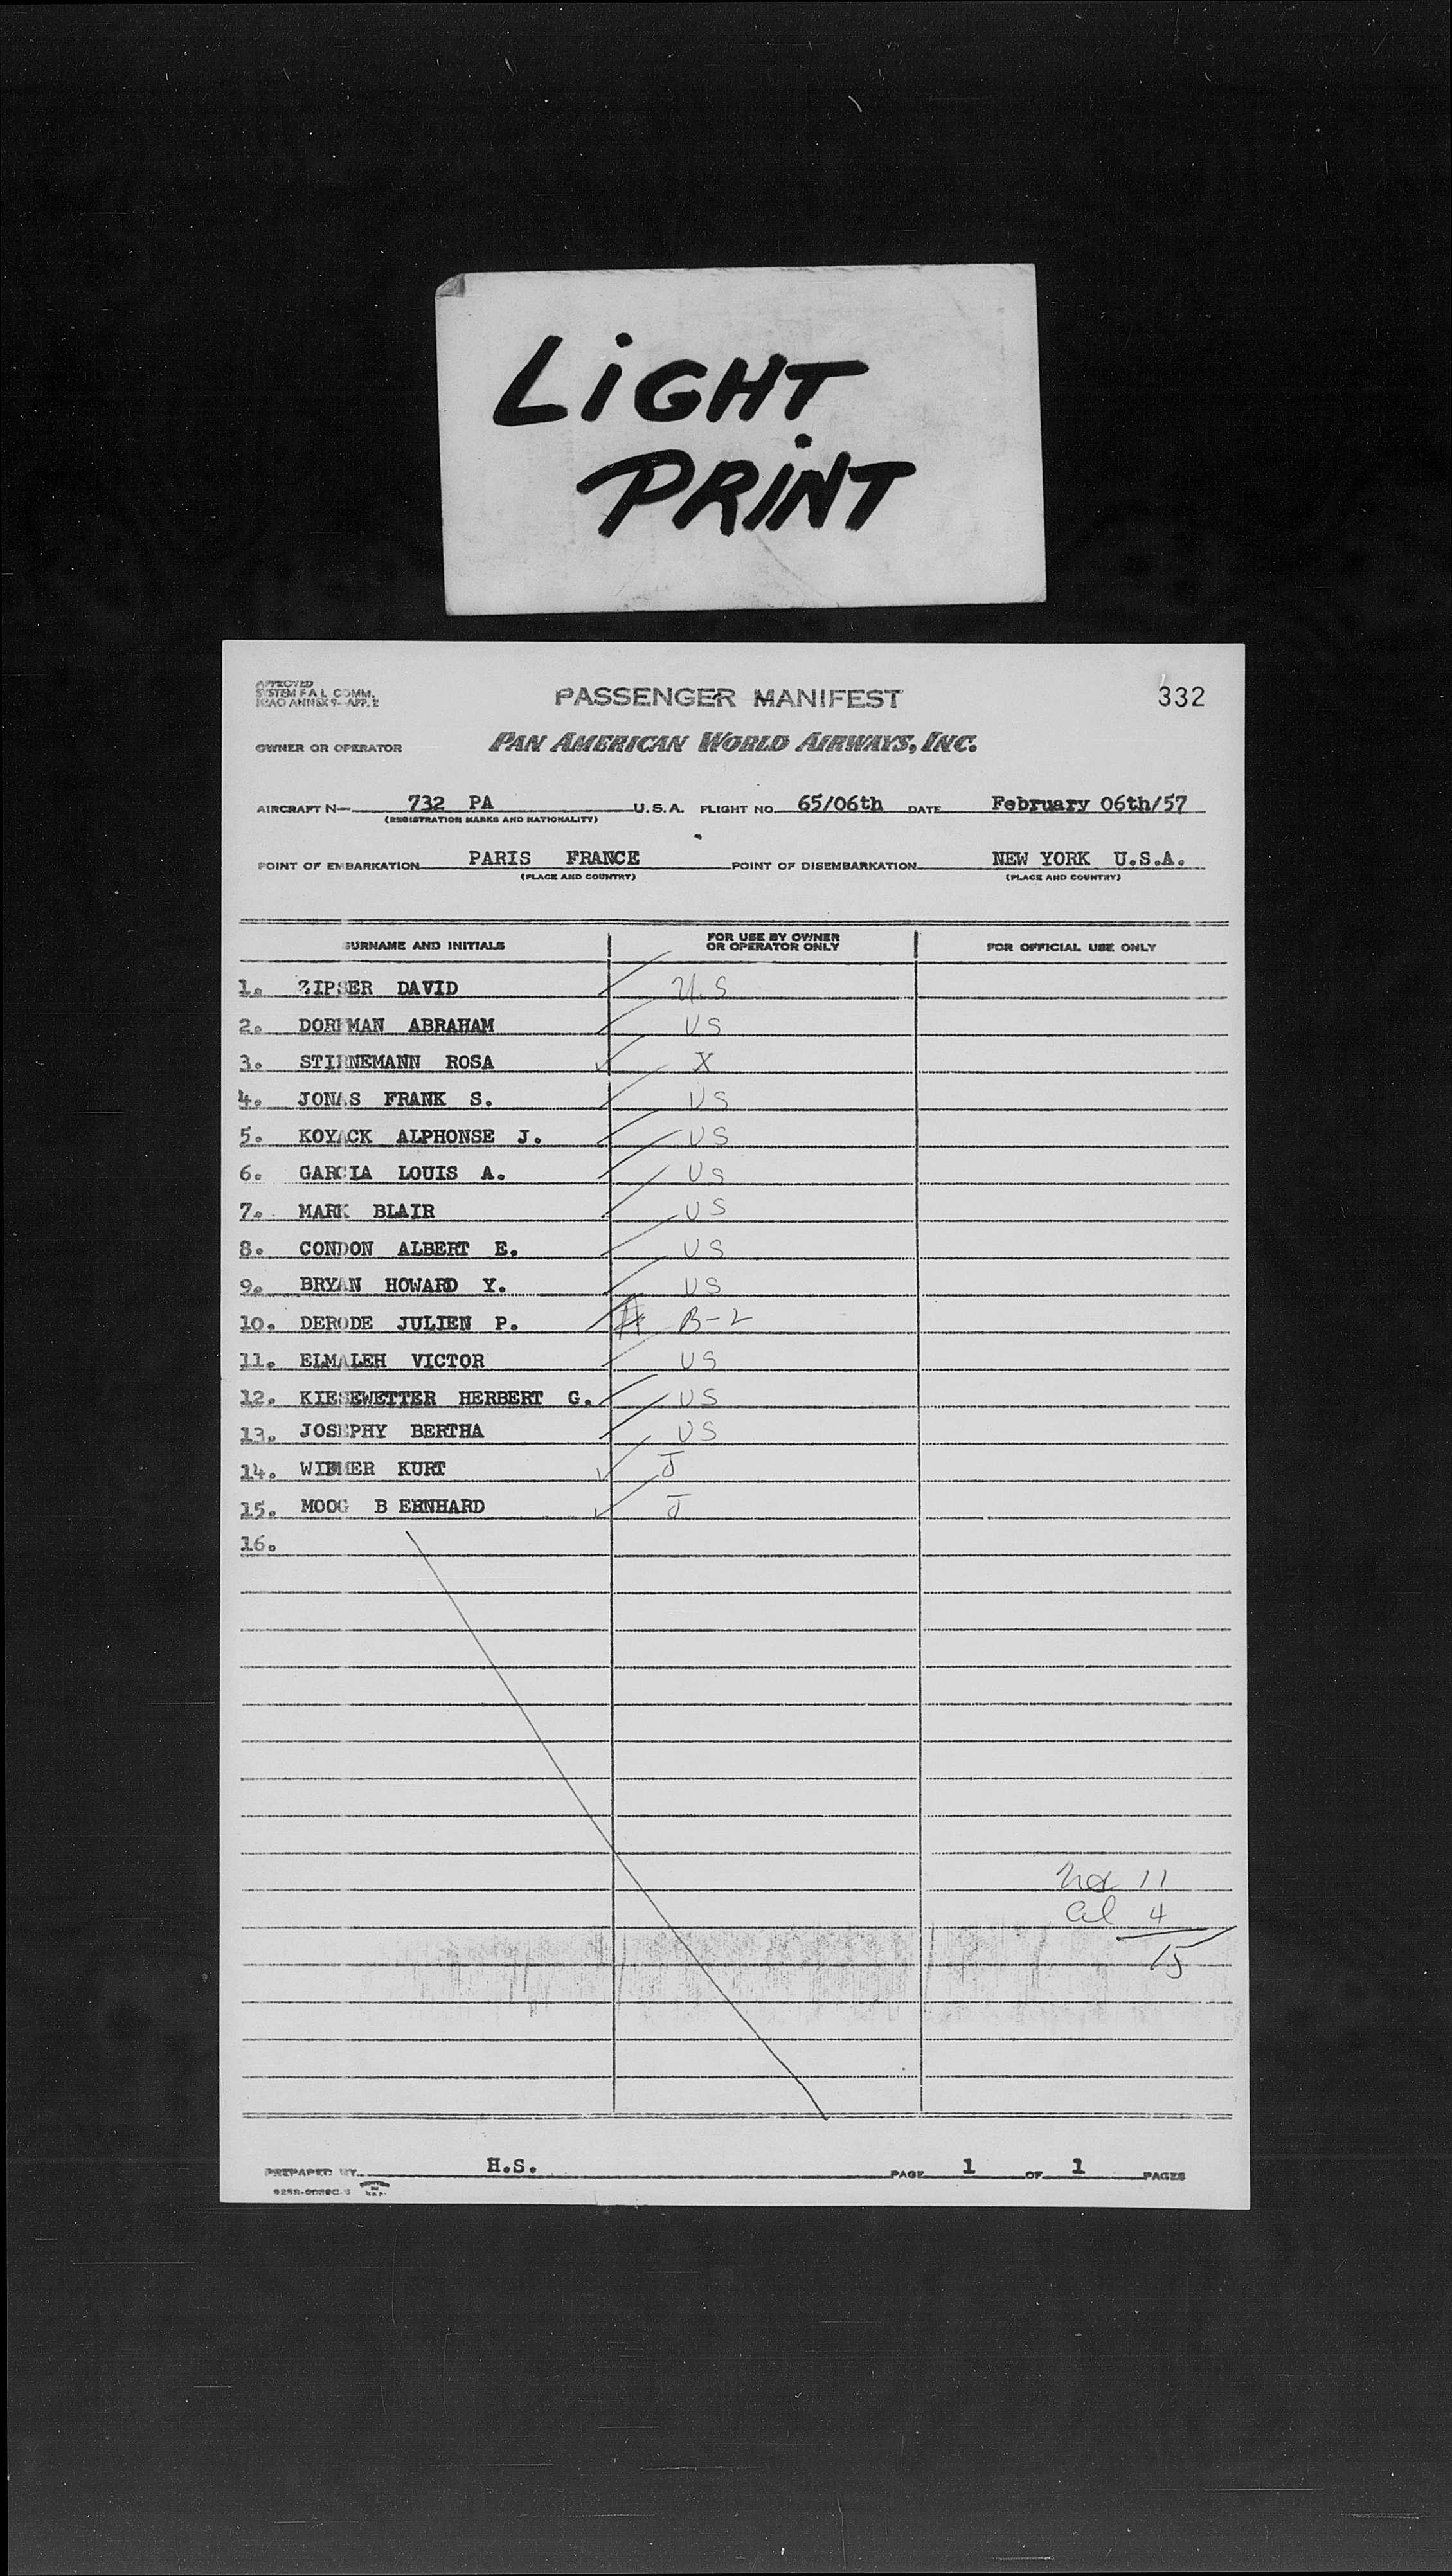 LiGHT
PRiNT
APPROVED
SYSTEM F A L COMM.
ICAO ANNEX 9- APP. 2
PASSENGER MANIFEST
332
OWNER OR OPERATOR
PAN AMERICAN WORLD AIRWAYS, INC.
AIRCRAFT N— 732 PA U.S.A. FLIGHT NO. 65/06th DATE February 06th/57
(REGISTRATION MARKS AND NATIONALITY)
POINT OF EMBARKATION PARIS FRANCE POINT OF DISEMBARKATION NEW YORK U.S.A.
(PLACE AND COUNTRY) (PLACE AND COUNTRY)
SURNAME AND INITIALS FOR USE BY OWNER OR OPERATOR ONLY FOR OFFICIAL USE ONLY
1. ZIPSER DAVID U.S
2. DORFMAN ABRAHAM US
3. STIRNEMANN ROSA X
4. JONAS FRANK S. US
5. KOYACK ALPHONSE J. US
6. GARCIA LOUIS A. US
7. MARK BLAIR US
8. CONDON ALBERT E. US
9. BRYAN HOWARD Y. US
10. DERODE JULIEN P. B-2
11. ELMALEH VICTOR US
12. KIESEWETTER HERBERT G. US
13. JOSEPHY BERTHA US
14. KURT J
15. MOOG B ERNHARD J
16.
11
al 4
15
PREPARED BY H.S. PAGE 1 OF 1 PAGES